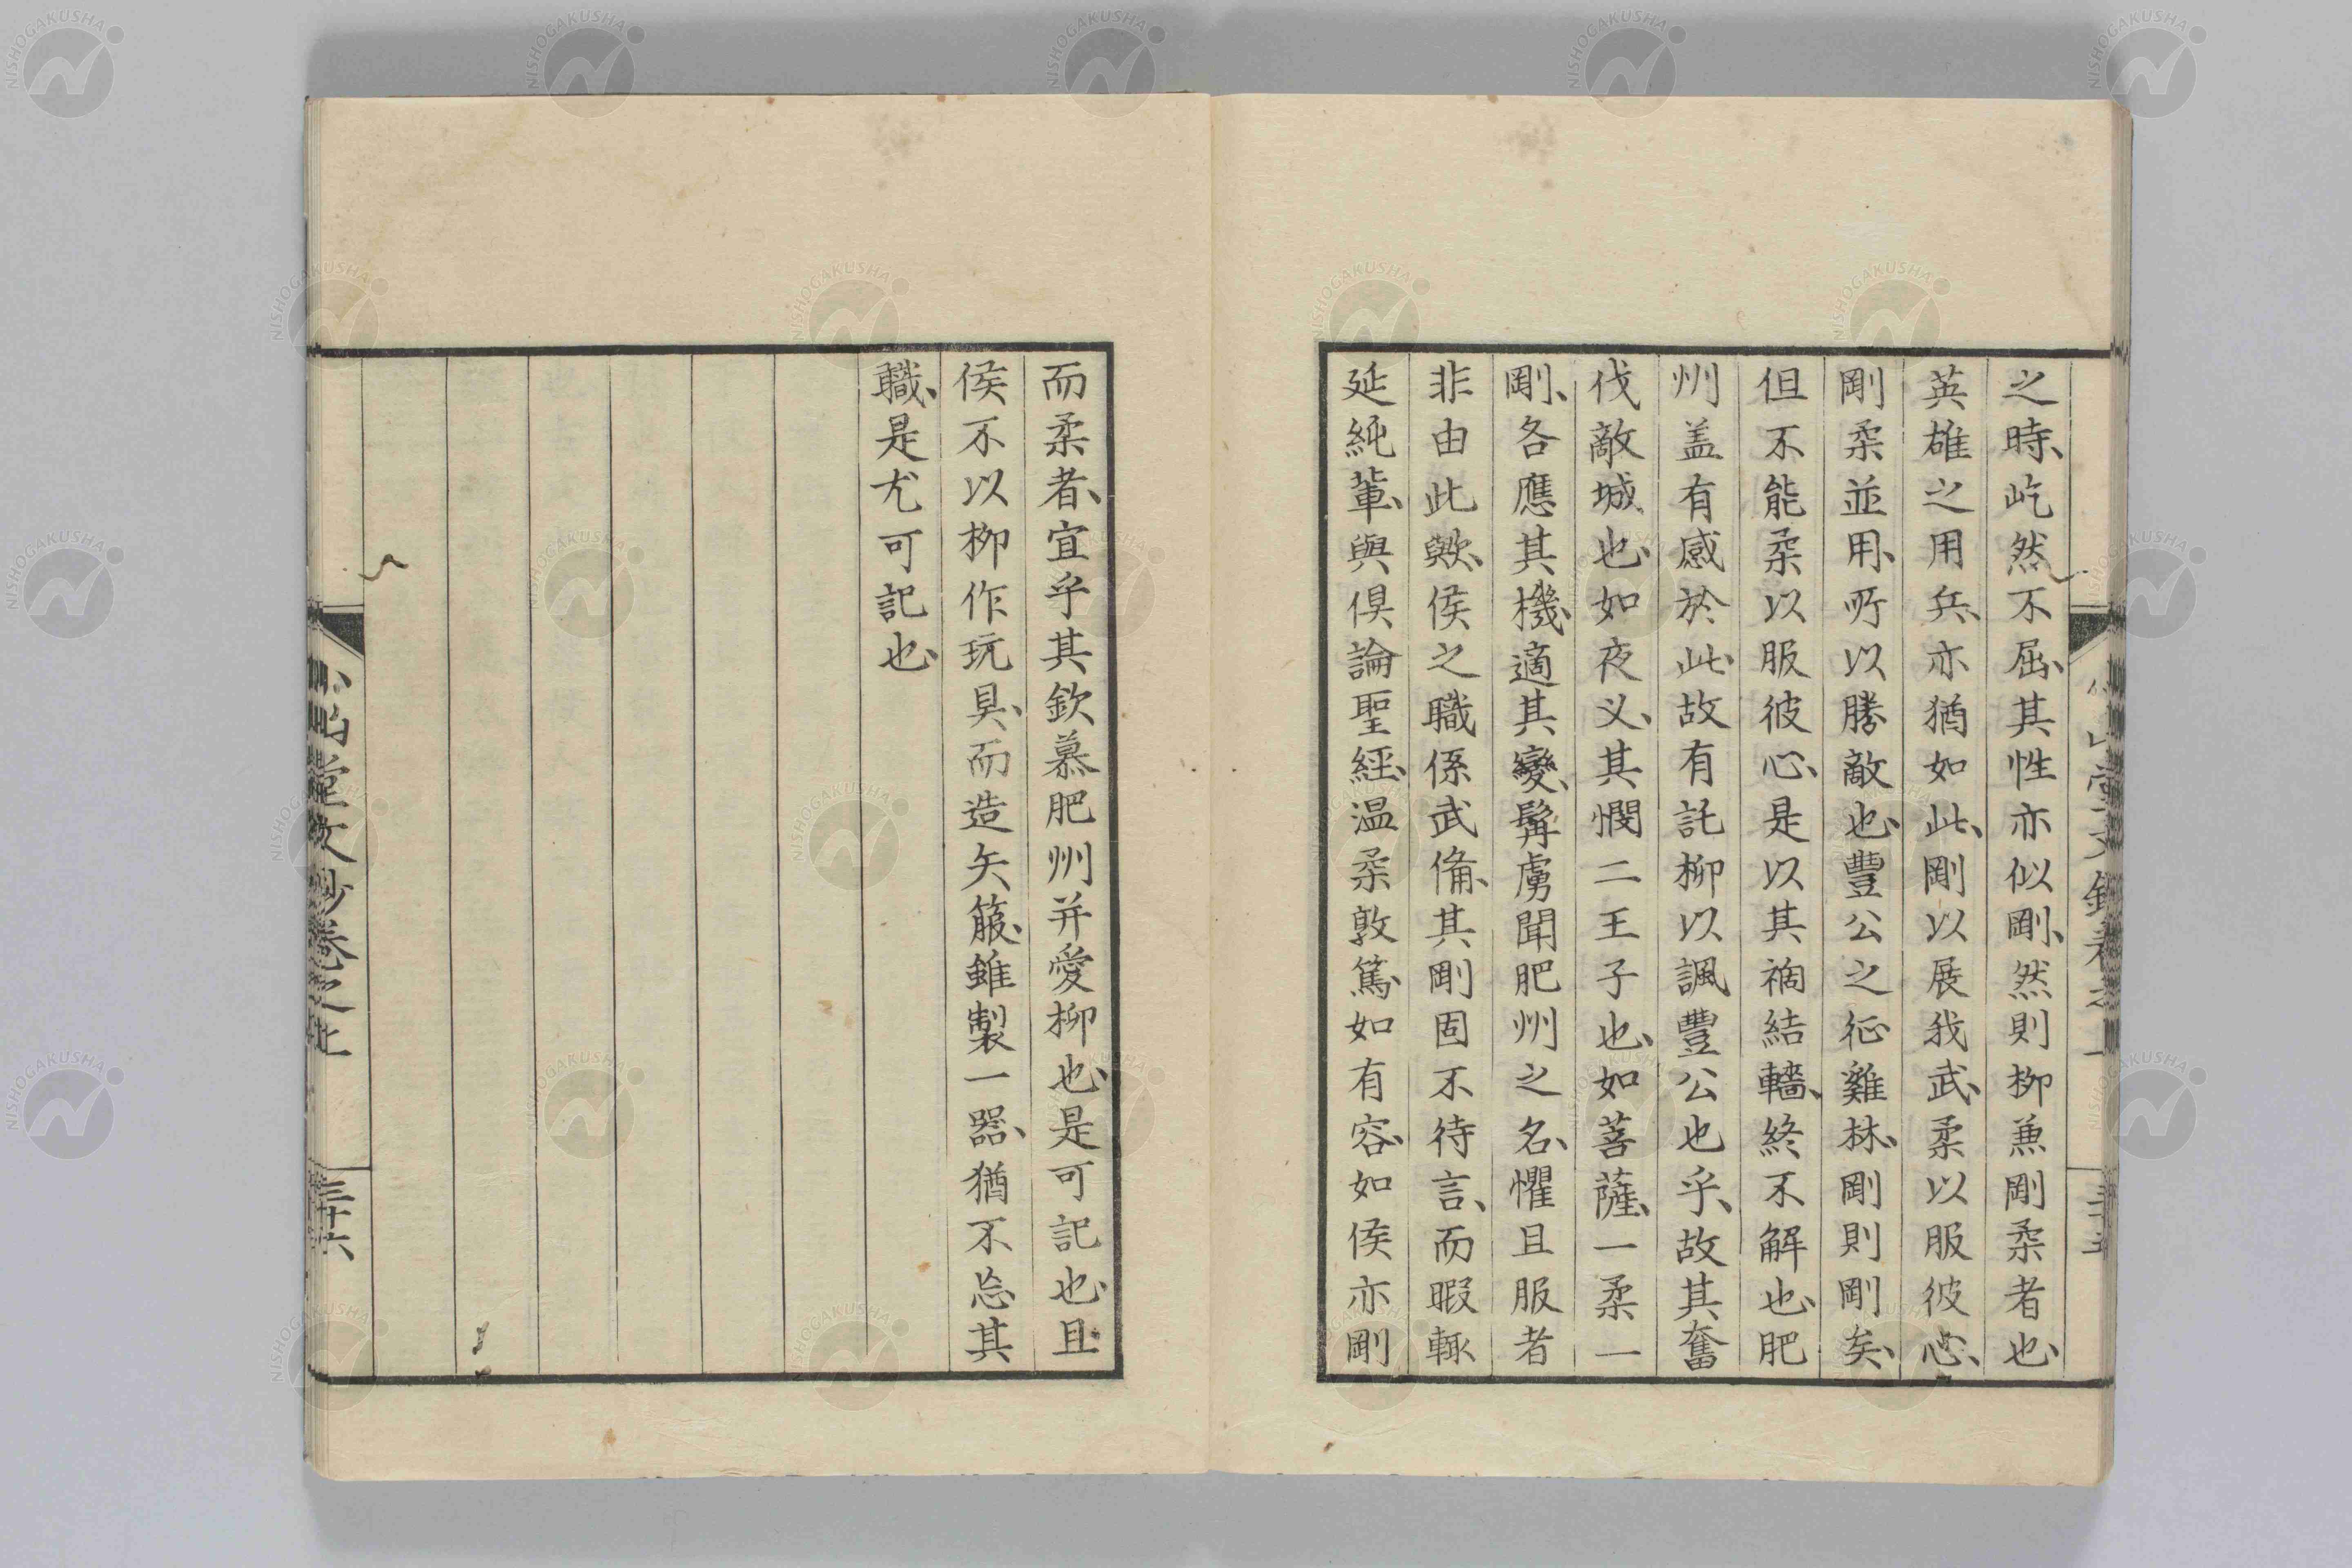 之時、屹然不屈、其性亦似剛、然則柳兼剛柔者也、
英雄之用兵、亦猶如此、剛以展我武、柔以服彼心、
剛柔並用、所以勝敵也、豐公之征雞林、剛則剛矣、
但不能柔以服彼心、是以其禍結轖、終不解也、肥
州盖有感於此、故有託柳以諷豐公也乎、故其奮
伐敵城也、如夜义、其憫二王子也、如菩薩、一柔一
剛、各應其機、適其變、髯虜聞肥州之名、懼且服者
非由此歟、侯之職係武俻、其剛固不待言、而暇輒
延純軰、與倶論聖經、温柔敦篤、如有容、如侯亦剛
而柔者、宜乎其欽慕肥州并愛柳也、是可記也、且
侯不以柳作玩具、而造矢箙、雖製一器、猶不忘其
職、是尤可記也、
堂文鈔卷之上
三十六
NISHOGAKUSHA